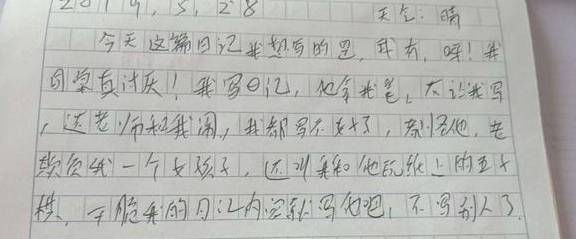 2019.5.28 天气:晴
今天这篇日记我想写的是,我有,呀!我
同桌真讨厌!我写日记,他拿我笔,不让我写
,还老师和我闹,我都写不好了,都怪他,老
欺负我一个女孩子,还叫我和他玩纸上的五子
棋,干脆我的日记内容就写他吧,不写别人了.